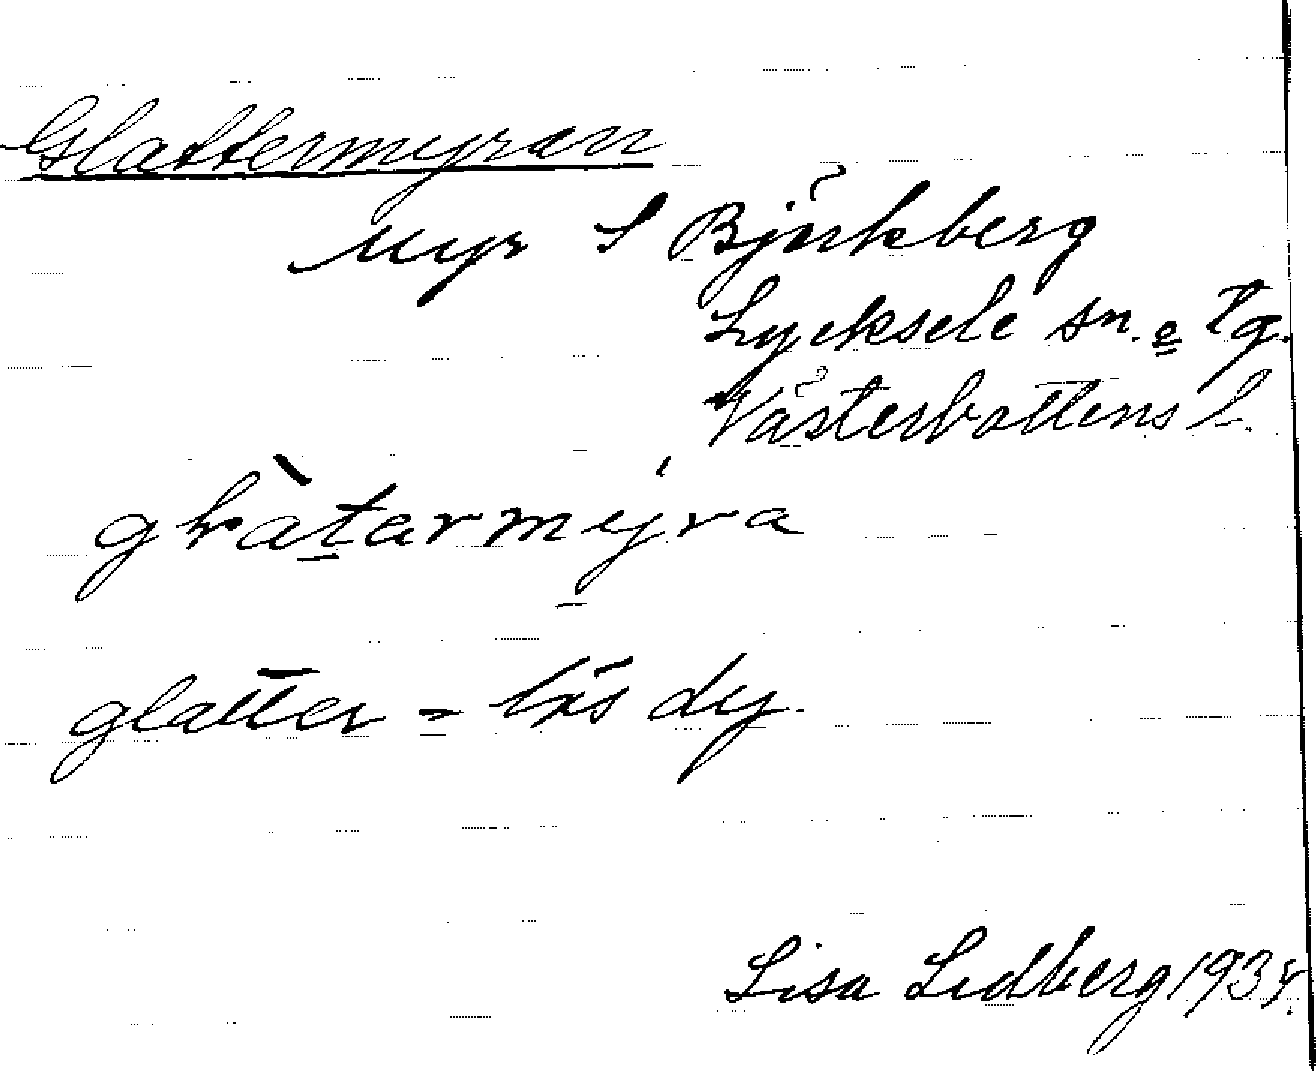 Glattermyran
Myr S Björkberg
Lycksele sn. o Tg.
Västerbottens l.
glatter = lös dy.
Lisa Lidberg 1934.